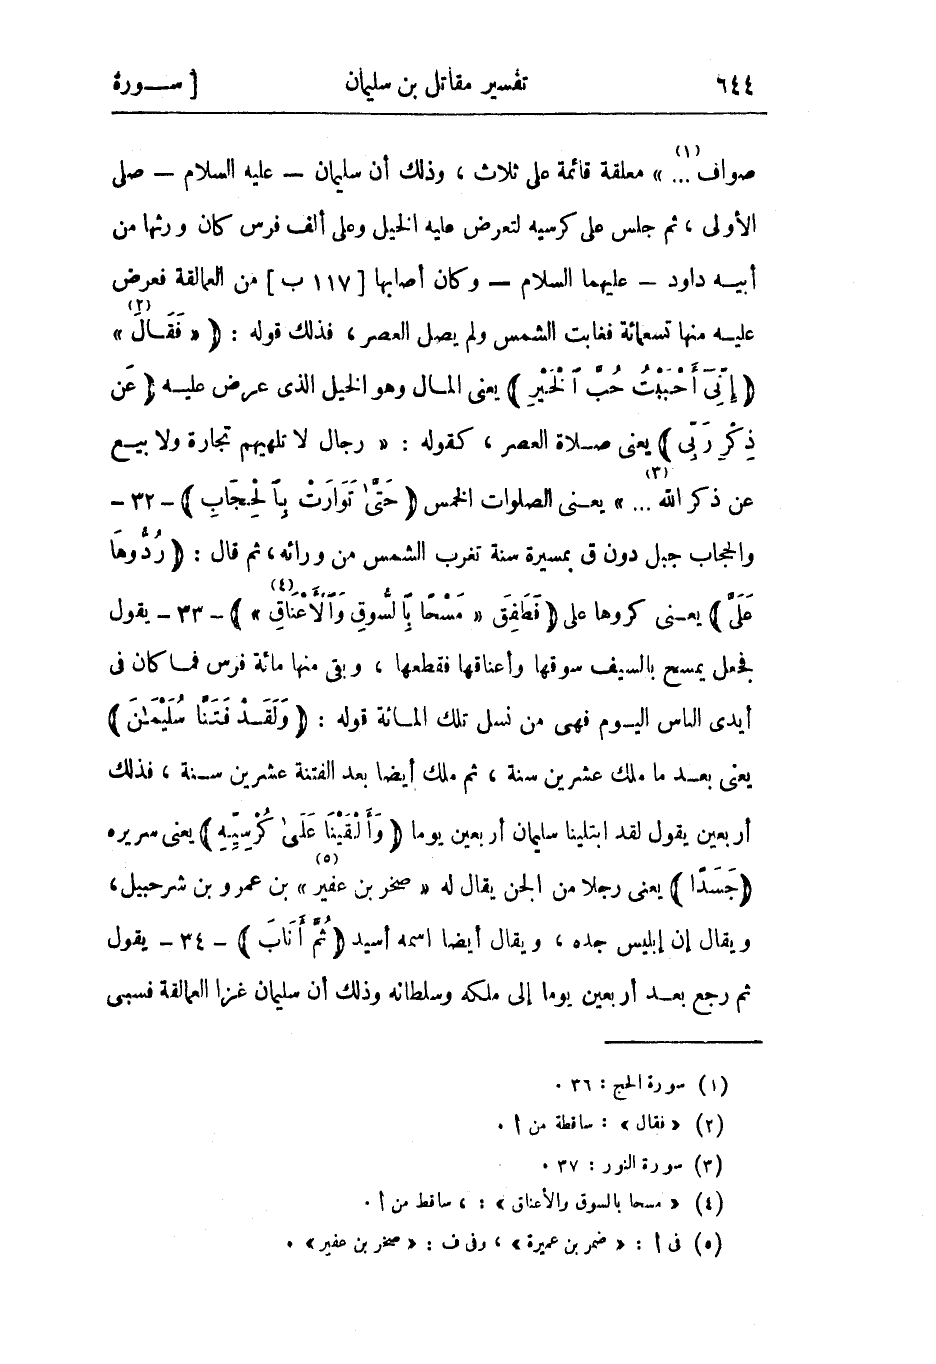 ٦٤٤ تفسير مقاتل بن سليمان [ سـورة
صواف ... » (١) معلقة قائمة على ثلاث ، وذلك أن سليمان — عليه السلام — صلى
الأولى ، ثم جلس على كرسيه لتعرض عليه الخيل وعلى ألف فرس كان ورثها من
أبيه داود — عليهما السلام — وكان أصابها [ ١١٧ ب ] من العمالقة فعرض
عليه منها تسعمائة فغابت الشمس ولم يصل العصر ، فذلك قوله : ( « فَقَالَ » (٢)
( إِنِّىٓ أَحْبَبْتُ حُبَّ ٱلْخَيْرِ ) يعنى المال وهو الخيل الذى عرض عليه ( عَن
ذِكْرِ رَبِّى ) يعنى صلاة العصر ، كقوله : « رجال لا تلهيهم تجارة ولا بيع
عن ذكر الله ... » (٣) يعنى الصلوات الخمس ( حَتَّىٰ تَوَارَتْ بِٱلْحِجَابِ ) - ٣٢ -
والحجاب جبل دون ق بمسيرة سنة تغرب الشمس من ورائه ، ثم قال : ( رُدُّوهَا
عَلَىَّ ) يعنى كروها على ( فَطَفِقَ « مَسْحًا بِٱلسُّوقِ وَٱلْأَعْنَاقِ » (٤) ) - ٣٣ - يقول
فجعل يمسح بالسيف سوقها وأعناقها فقطعها ، وبقى منها مائة فرس فما كان فى
أيدى الناس اليوم فهى من نسل تلك المائة قوله : ( وَلَقَدْ فَتَنَّا سُلَيْمَٰنَ )
يعنى بعد ما ملك عشرين سنة ، ثم ملك أيضا بعد الفتنة عشرين سنة ، فذلك
أربعين يقول لقد ابتلينا سليمان أربعين يوما ( وَأَلْقَيْنَا عَلَىٰ كُرْسِيِّهِ ) يعنى سريره
( جَسَدًا ) يعنى رجلا من الجن يقال له « صخر بن عفير » (٥) بن عمرو بن شرحبيل ،
ويقال إن إبليس جده ، ويقال أيضا اسمه أسيد ( ثُمَّ أَنَابَ ) - ٣٤ - يقول
ثم رجع بعد أربعين يوما إلى ملكه وسلطانه وذلك أن سليمان غزا العمالقة فسبى
(١) سورة الحج : ٣٦ .
(٢) « فقال » : ساقطة من أ .
(٣) سورة النور : ٣٧ .
(٤) « مسحا بالسوق والأعناق » : ، ساقط من أ .
(٥) فى أ : « ضمر بن عميرة » ، وفى ف : « صخر بن عفير » .